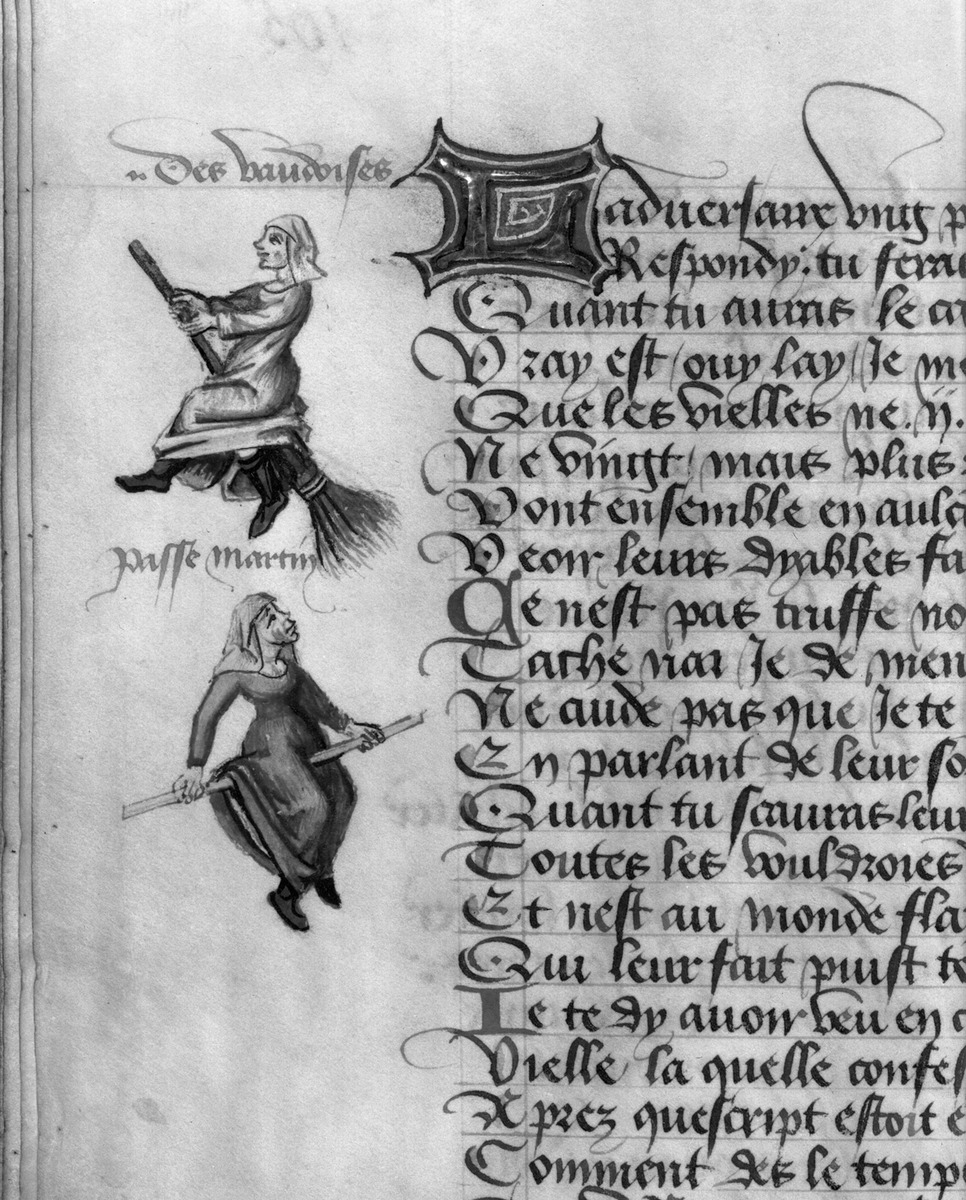 Des vaudoises
passe martin
Ladversaire vng
Respondy. tu feras
Quant tu auras le
Vray est ouy lay Je me
Que les vielles ne .ij.
Ne vingt mais plus
Vont ensemble en
Veoir leurs dyables
Ce nest pas truffe
Tache nai Je de
Ne cuide pas que Je te
En parlant de leur
Quant tu scauras leur
Toutes les vouldroies
Et nest au monde
Qui leur fait puist
Ie te dy auoir veu en
Vielle la quelle
Aprez quescript estoit
Comment des le temps